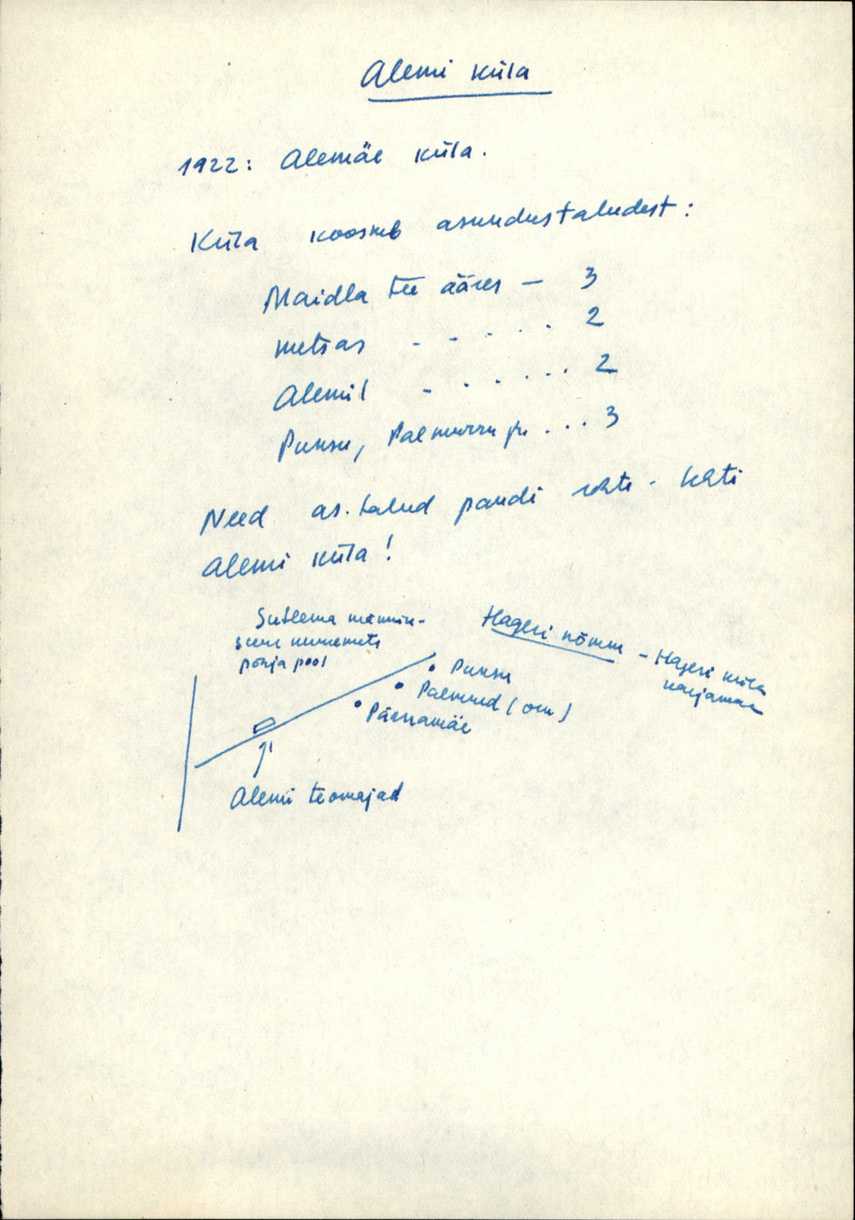 Alemi küla
1922: Alemäe küla.
Küla koosneb asundustaludest:
Maidla tee ääres – 3
metsas - - . . . 2
Alemil - . . . . . 2
Punsu, Palmurru jne . . . 3
Need as. talud pandi kokku - tehti
Alemi küla!
Sutlema männik-
põhja pool
Hageri nõmm – Hageri küla
karjamaa
Punsu
Palmurd (om)
Pärnamäe
Alemi teomajad